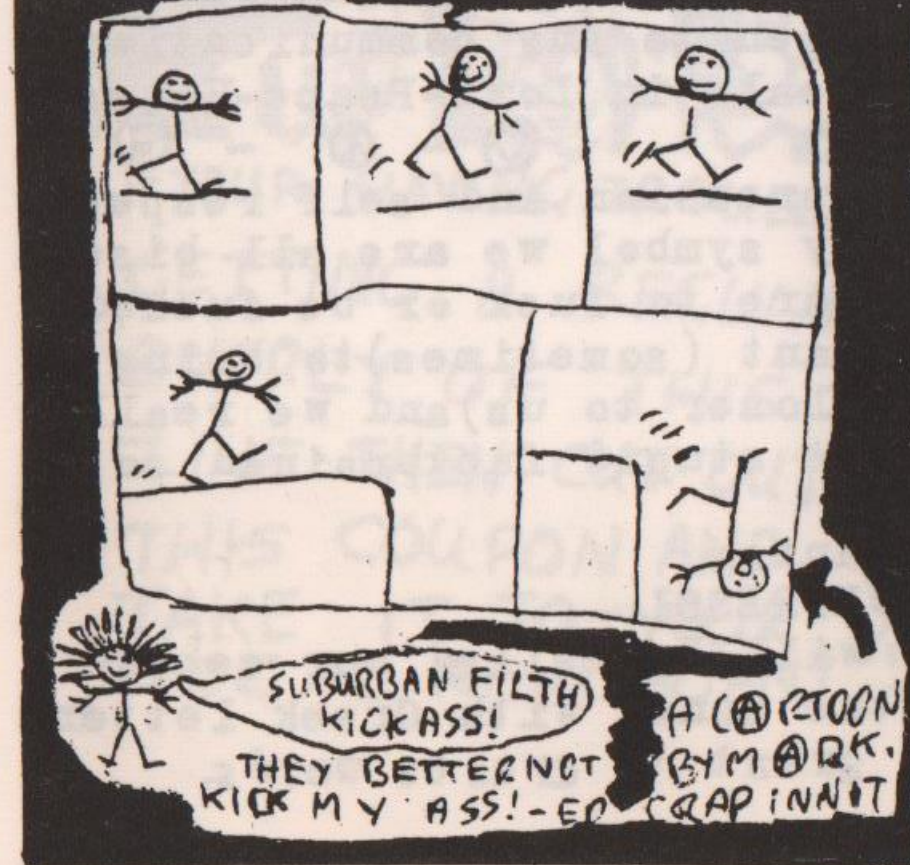 SUBURBAN FILTH
KICK ASS!
THEY BETTER NOT
KICK MY ASS! - ED
A CⒶRTOON
BY MⒶRK.
CRAP INNIT